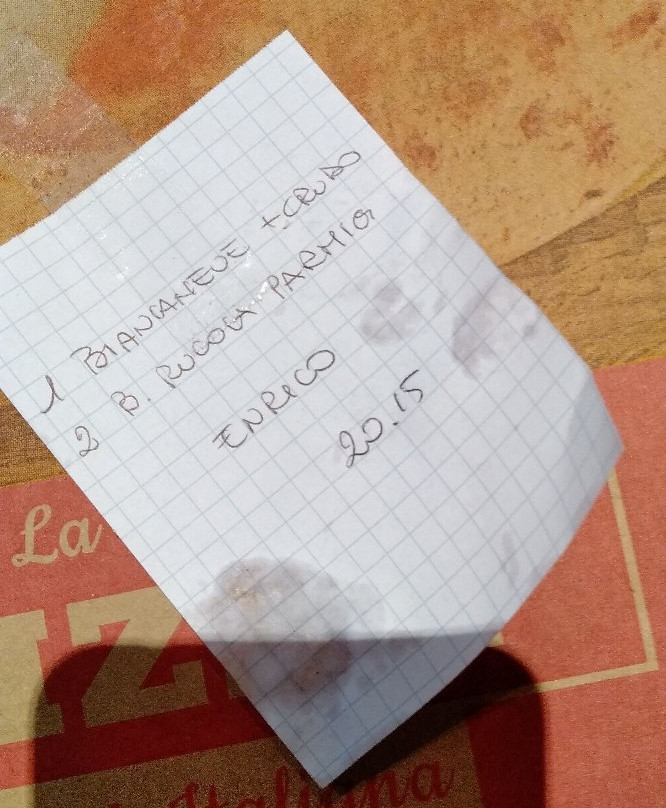 1 BIANCANEVE + CRUDO
2 B. RUCOLA PARMIG
ENRICO
20.15
La
IZ
Italiana